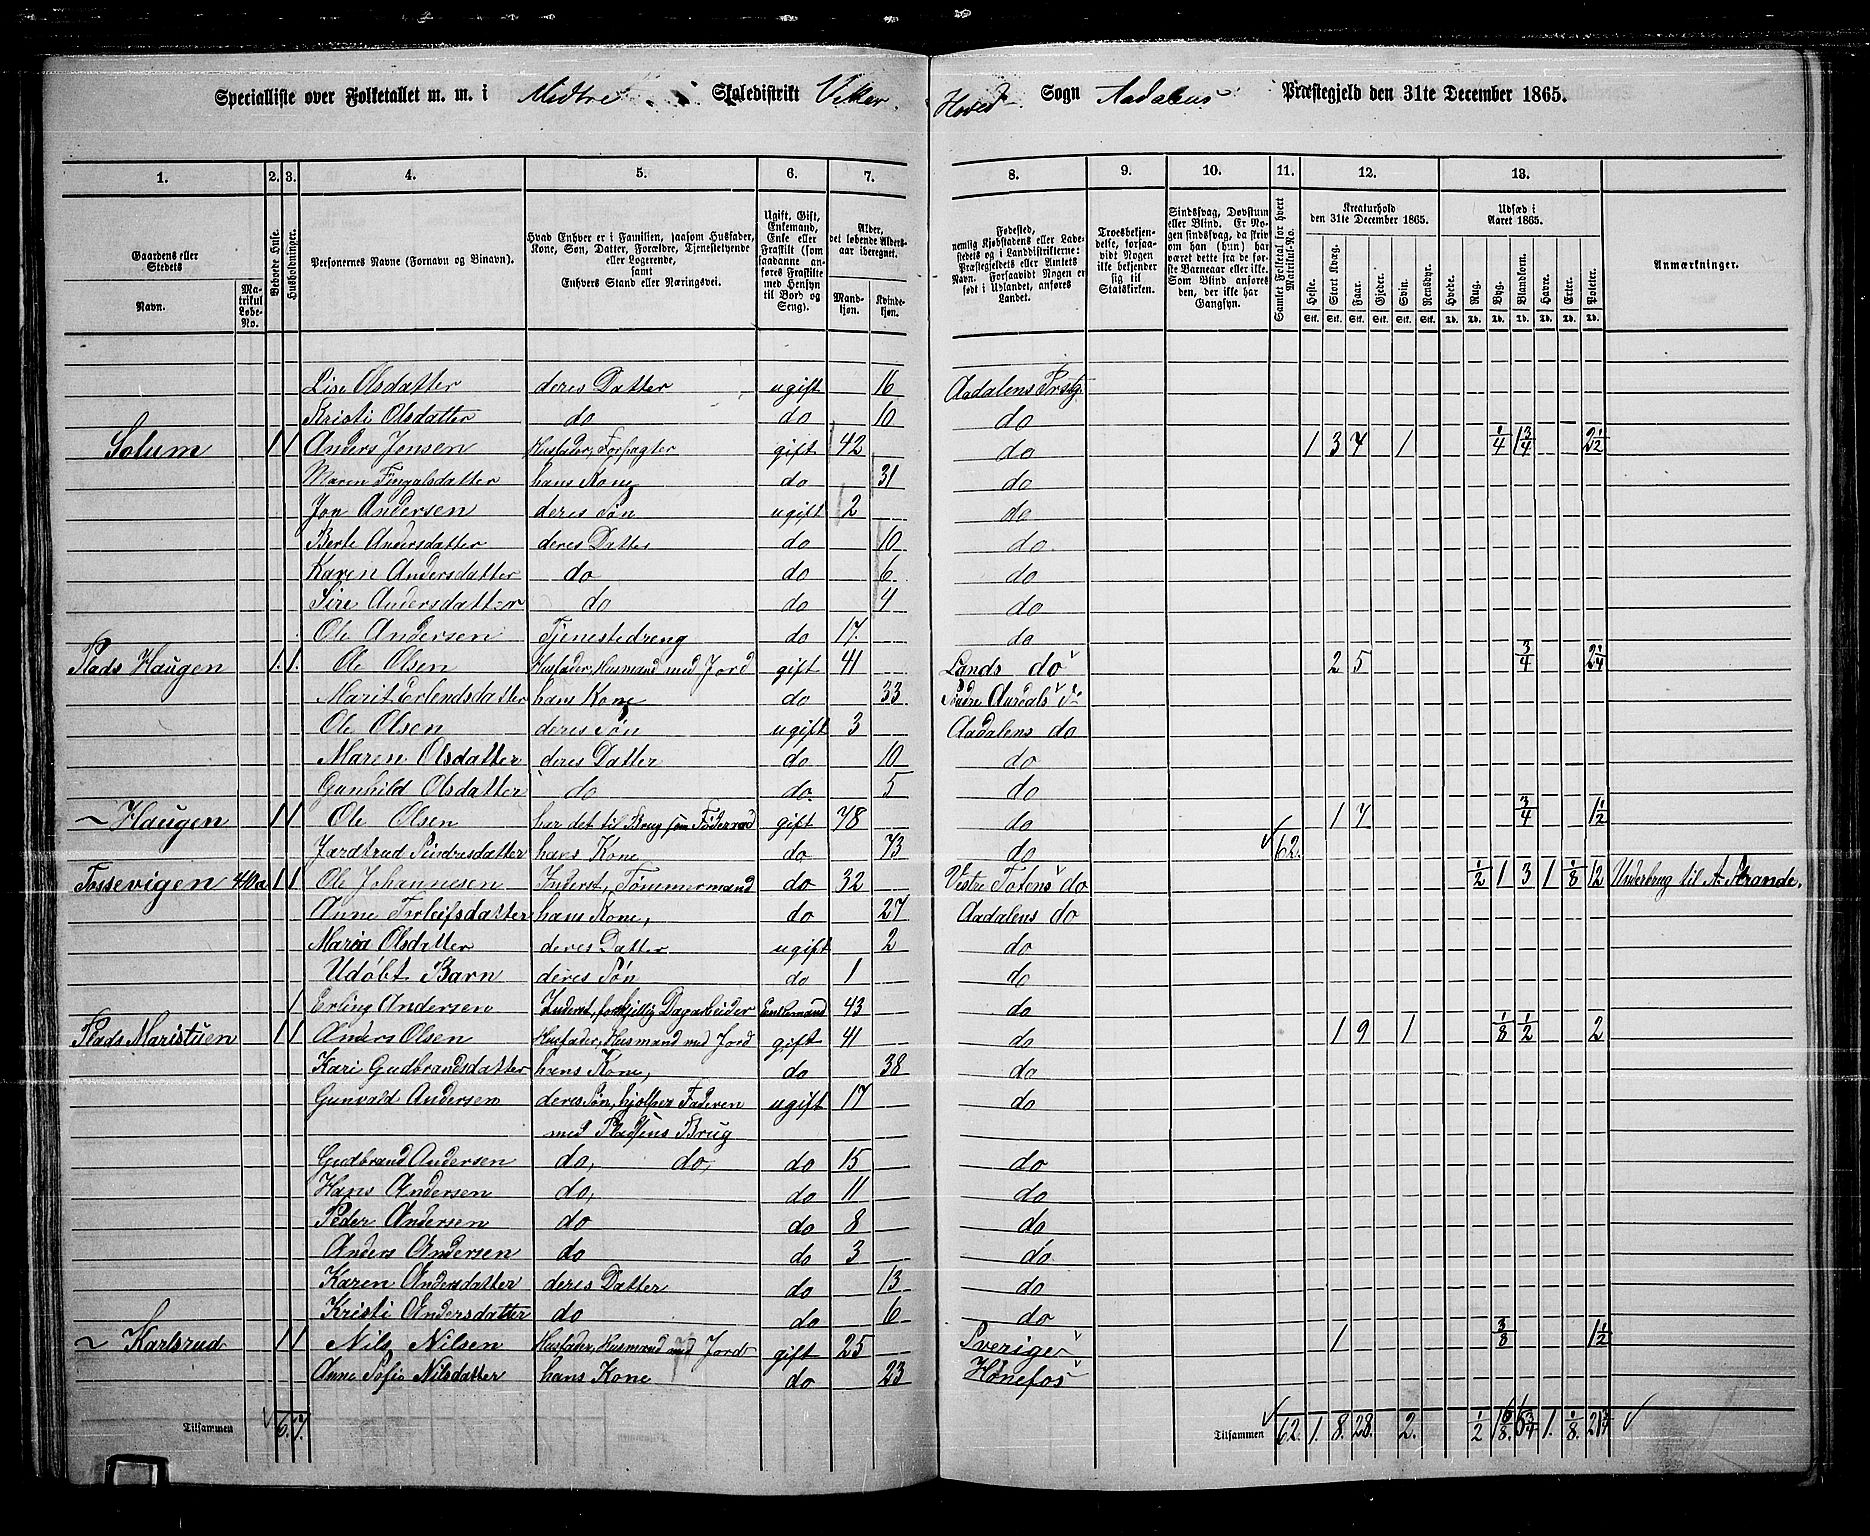 Specialliste over Folketallet m. m. i Midtre Skoledistrikt Veker Hoved Sogn Aadalens Præstegjeld den 31te December 1865.
1. 2. 3. 4. 5. 6. 7. 8. 9. 10. 11. 12. 13.
Gaardens eller Stedets
Navn.
Matrikul Løbe-No.
Beboede Huse.
Husholdninger.
Personernes Navne (Fornavn og Binavn).
Hvad Enhver er i Familien, saasom Husfader, Kone, Søn, Datter, Forældre, Tjenestetyende eller Logerende, samt Enhvers Stand eller Næringsvei.
Ugift, Gift, Enkemand, Enke eller Fraskilt (som saadanne anføres Fraskilte med Hensyn til Bord og Seng).
Alder, det løbende Aldersaar iberegnet.
Mandkjøn. Kvindekjøn.
Fødested, nemlig Kjøbstadens eller Ladestedets og i Landdistrikterne: Præstegjeldets eller Amtets Navn. Forsaavidt Nogen er født i Udlandet, anføres Landet.
Troesbekjendelse, forsaavidt Nogen ikke bekjender sig til Statskirken.
Sindssvag, Døvstum eller Blind. Er Nogen sindssvag, da skrives om han (hun) har været dette fra de første Barneaar eller ikke. Som Blind anføres den, der ikke har Gangsyn.
Samlet Folketal for hvert Matrikul-No.
Kreaturhold den 31te December 1865.
Heste. Stort Kvæg. Faar. Gjeder. Svin. Rensdyr.
Stk. Stk. Stk. Stk. Stk. Stk.
Udsæd i Aaret 1865.
Hvede. Rug. Byg. Blandkorn. Havre. Erter. Poteter.
Td. Td. Td. Td. Td. Td. Td.
Anmærkninger.
Lise Olsdatter deres Datter ugift 16 Aadalens Prstg.
Kristi Olsdatter do do 10 do
Solum 1 1 Anders Jonsen Husfader, Forpagter gift 42 do 1 3 7 1 1/4 1 3/4 2 1/2
Maren Fingalsdatter hans Kone do 31 do
Jon Andersen deres Søn ugift 2 do
Berte Andersdatter deres Datter do 10 do
Karen Andersdatter do do 6 do
Sire Andersdatter do do 4 do
Ole Andersen Tjenestedreng do 17. do
Plads Haugen 1. 1. Ole Olsen Husfader, Husmand med Jord gift 41 Lands do 2 5 3/4 2 1/4
Marit Erlendsdatter hans Kone do 33 Søndre Aurdals
Ole Olsen deres Søn ugift 3 Aadalens do
Maren Olsdatter deres Datter do 10 do
Gunhild Olsdatter do do. 5 do
~ Haugen 1 1 Ole Olsen har det til Brug som Føderaad gift 78 do 1 7 3/4 1 1/2
Jærdtrud Sindresdatter hans Kone do 73 do 62.
Fossevigen 40a 1 1 Ole Johannesen Inderst, Tømmermand do 32 Vestre Totens do 1/2 1 3 1 1/8 12 Underbrug til A. Strande.
Anne Torleifsdatter hans Kone, do 27 Aadalens do
Maria Olsdatter deres Datter ugift 2 do
Udøbt Barn deres Søn do 1 do
1 Erling Andersen Inderst, forskjellig Dagarbeider Enkemand 43 do
Plads Maristuen 1 1 Anders Olsen Husfader, Husmand med Jord gift 41 do 1 9 1 1/8 1/2 2
Kari Gudbrandsdatter hans Kone, do 38 do
Gunvald Andersen deres Søn, hjælper Faderen ugift 17 do
med Pladsens Brug
Gudbrand Andersen do, do, do 15 do
Hans Andersen do, do 11 do
Peder Andersen do do 8 do
Anders Andersen do do 3 do
Karen Andersdatter deres Datter do 13 do
Kristi Andersdatter do do 6 do
~ Karlsrud 1 1 Nils Nilsen Husfader, Husmand med Jord gift 25 Sverige 1 3/8 1 1/2
Anne Sofie Nilsdatter hans Kone do 23 Hønefos
Tilsammen 6. 7. Tilsammen 62. 1. 8. 28. 2. 1/2 1 6/8. 6 3/4 1. 1/8.